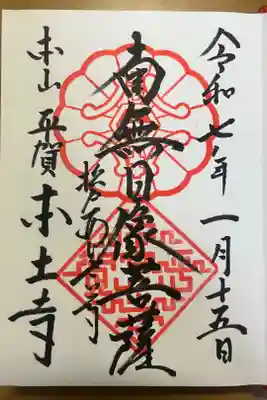 令和七年 一月十五日
南無日像菩薩
松戸あじさい寺
本山 平賀 本土寺